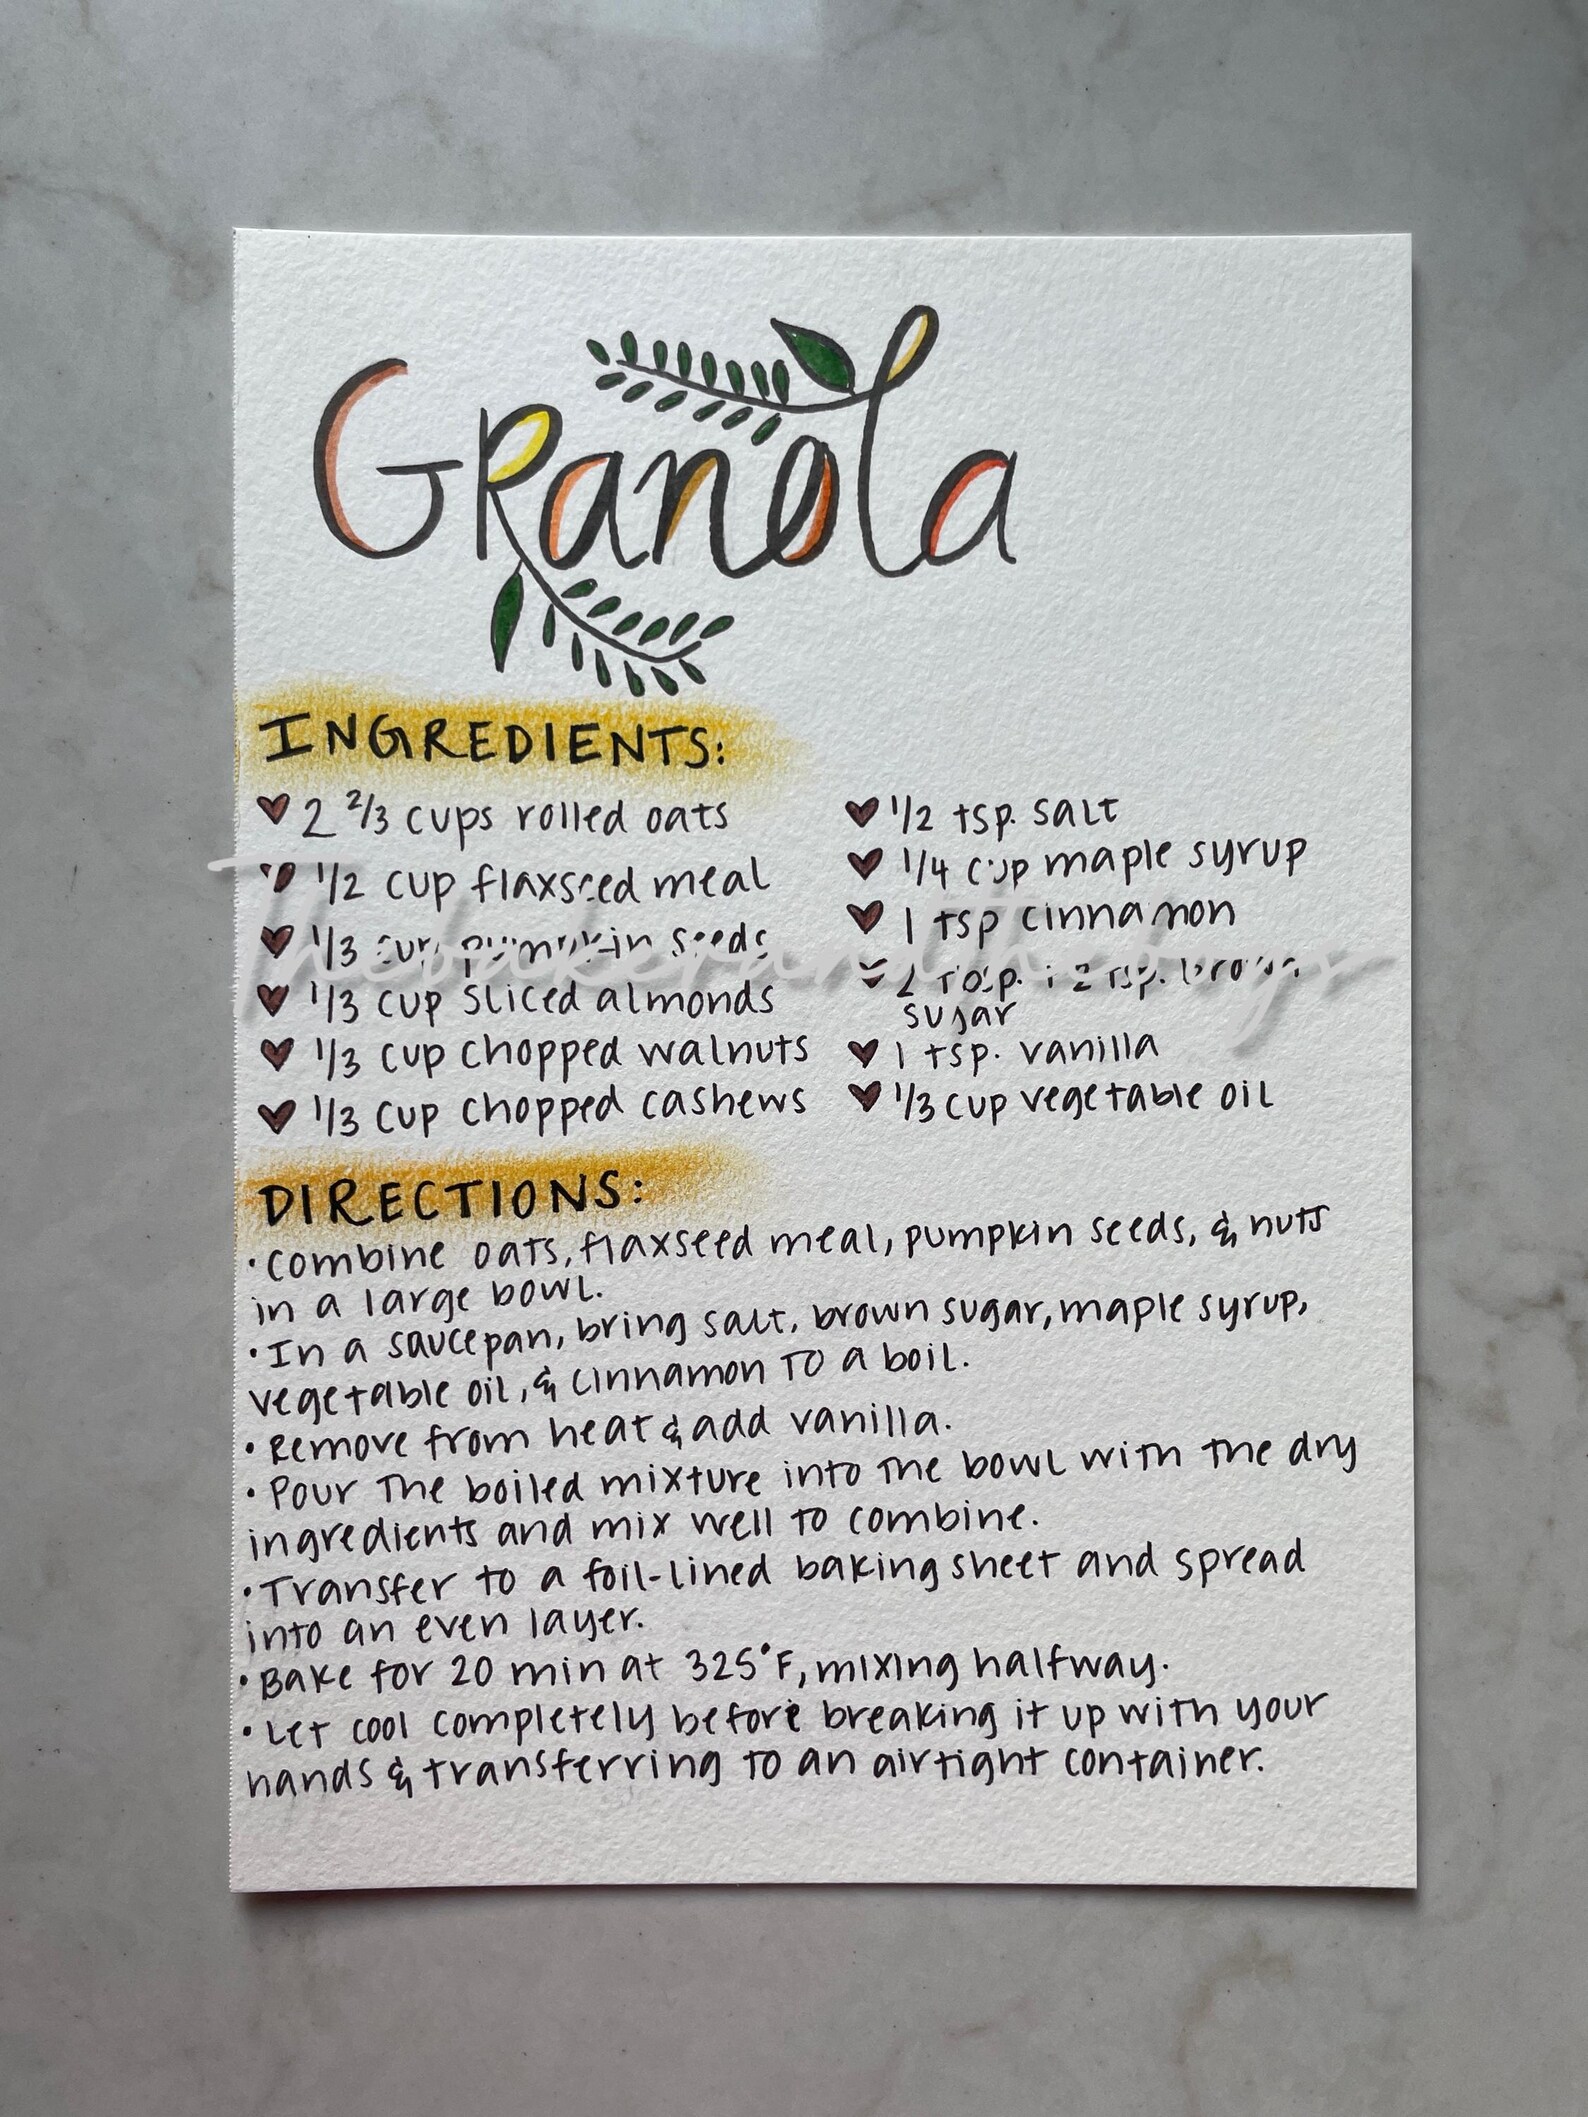 Granola
INGREDIENTS:
2 2/3 cups rolled oats
1/2 cup flaxseed meal
1/3 cup pumpkin seeds
1/3 cup sliced almonds
1/3 cup chopped walnuts
1/3 cup chopped cashews
1/2 tsp. salt
1/4 cup maple syrup
1 tsp cinnamon
2 tbsp. + 2 tsp. brown
sugar
1 tsp. vanilla
1/3 cup vegetable oil
DIRECTIONS:
• Combine oats, flaxseed meal, pumpkin seeds, & nuts
in a large bowl.
• In a saucepan, bring salt, brown sugar, maple syrup,
vegetable oil, & cinnamon to a boil.
• Remove from heat & add vanilla.
• Pour the boiled mixture into the bowl with the dry
ingredients and mix well to combine.
• Transfer to a foil-lined baking sheet and spread
into an even layer.
• Bake for 20 min at 325°F, mixing halfway.
• Let cool completely before breaking it up with your
hands & transferring to an airtight container.